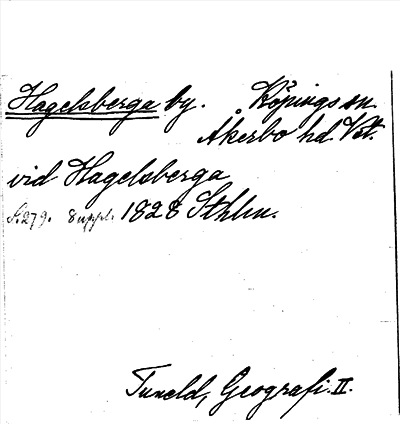 Hagelsberga by. Köpings sn.
Åkerbo hd. Vst.
vid Hagelsberga
S. 279. 8 uppl. 1828 Sthlm.
Tuneld, Geografi. II.